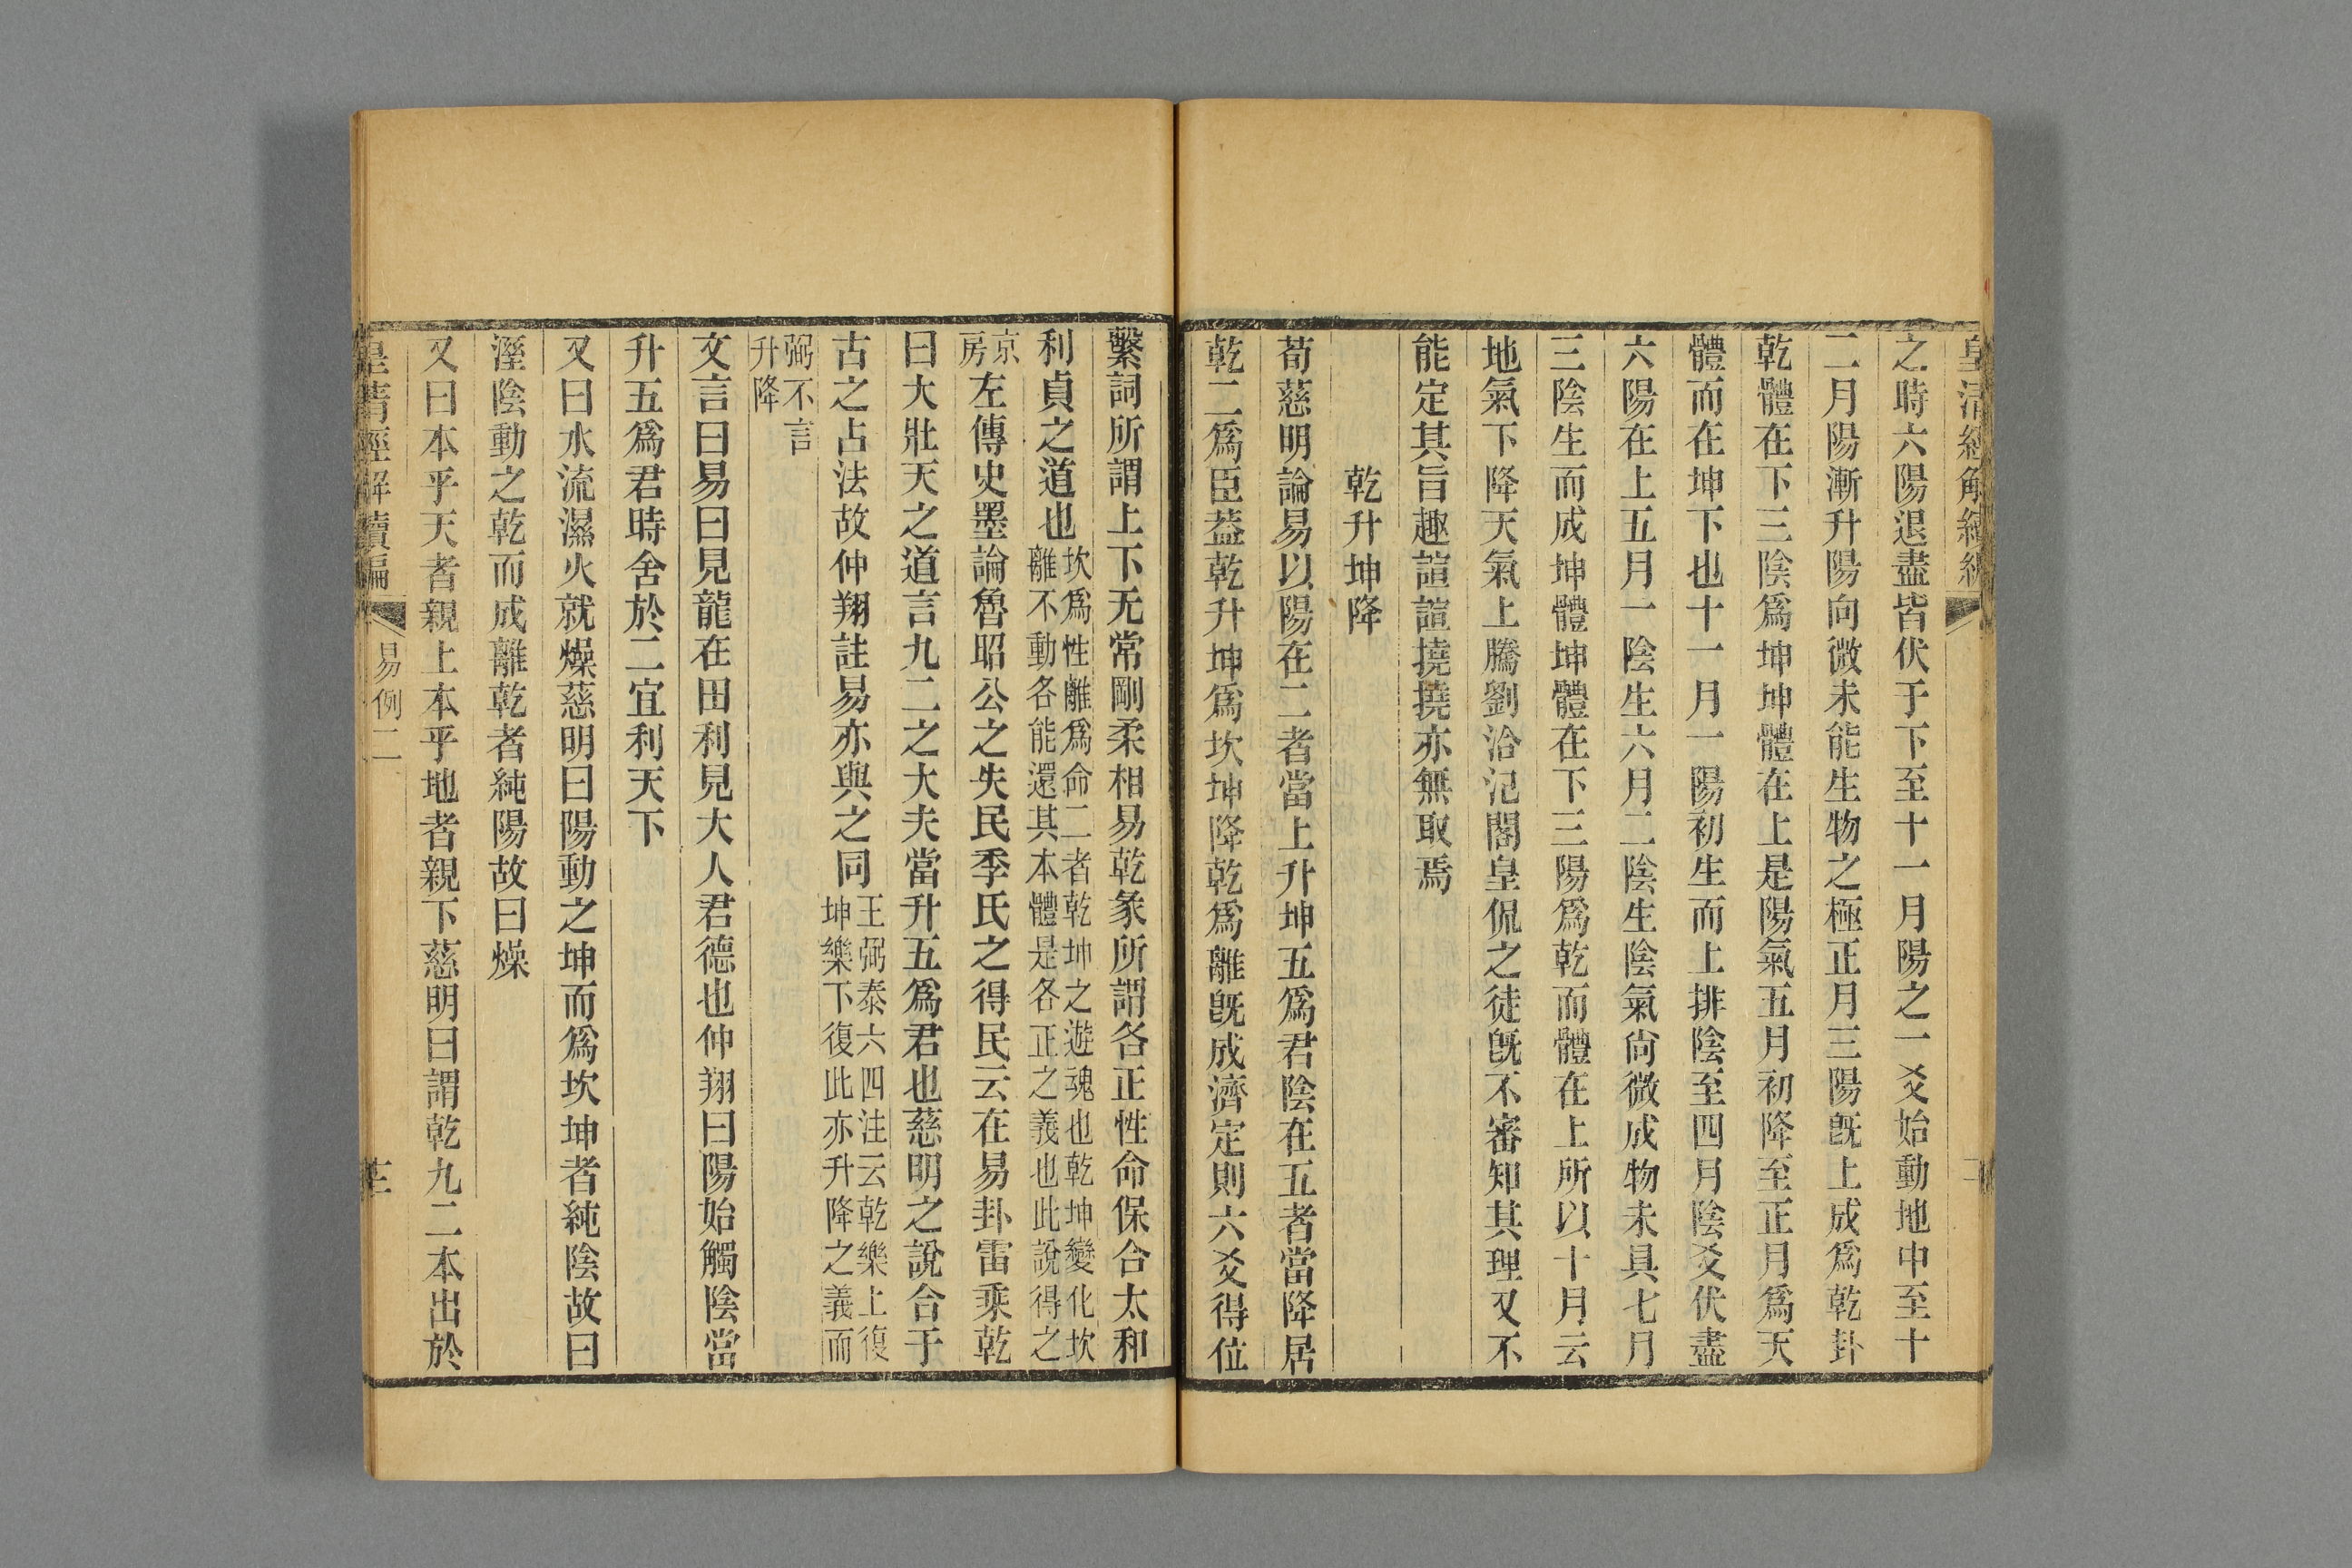 皇清經解續編
之時六陽退盡皆伏于下至十一月陽之一爻始動地中至十
二月陽漸升陽向微未能生物之極正月三陽旣上成爲乾卦
乾體在下三陰爲坤坤體在上是陽氣五月初降至正月爲天
體而在坤下也十一月一陽初生而上排陰至四月陰爻伏盡
六陽在上五月一陰生六月二陰生陰氣尙微成物未具七月
三陰生而成坤體坤體在下三陽爲乾而體在上所以十月云
地氣下降天氣上騰劉洽氾閣皇侃之徒旣不審知其理又不
能定其旨趣諠諠撓撓亦無取焉
乾升坤降
荀慈明論易以陽在二者當上升坤五爲君陰在五者當降居
乾二爲臣葢乾升坤爲坎坤降乾爲離旣成濟定則六爻得位
繫詞所謂上下无常剛柔相易乾彖所謂各正性命保合太和
利貞之道也坎爲性離爲命二者乾坤之遊魂也乾坤變化坎
離不動各能還其本體是各正之義也此說得之
京
房左傳史墨論魯昭公之失民季氏之得民云在易卦雷乘乾
曰大壯天之道言九二之大夫當升五爲君也慈明之說合于
古之占法故仲翔註易亦與之同王弼泰六四注云乾樂上復
坤樂下復此亦升降之義而
弼不言
升降
文言曰易曰見龍在田利見大人君德也仲翔曰陽始觸陰當
升五爲君時舍於二宜利天下
又曰水流濕火就燥慈明曰陽動之坤而爲坎坤者純陰故曰
溼陰動之乾而成離乾者純陽故曰燥
又曰本乎天者親上本乎地者親下慈明曰謂乾九二本出於
皇清經解續編 易例二